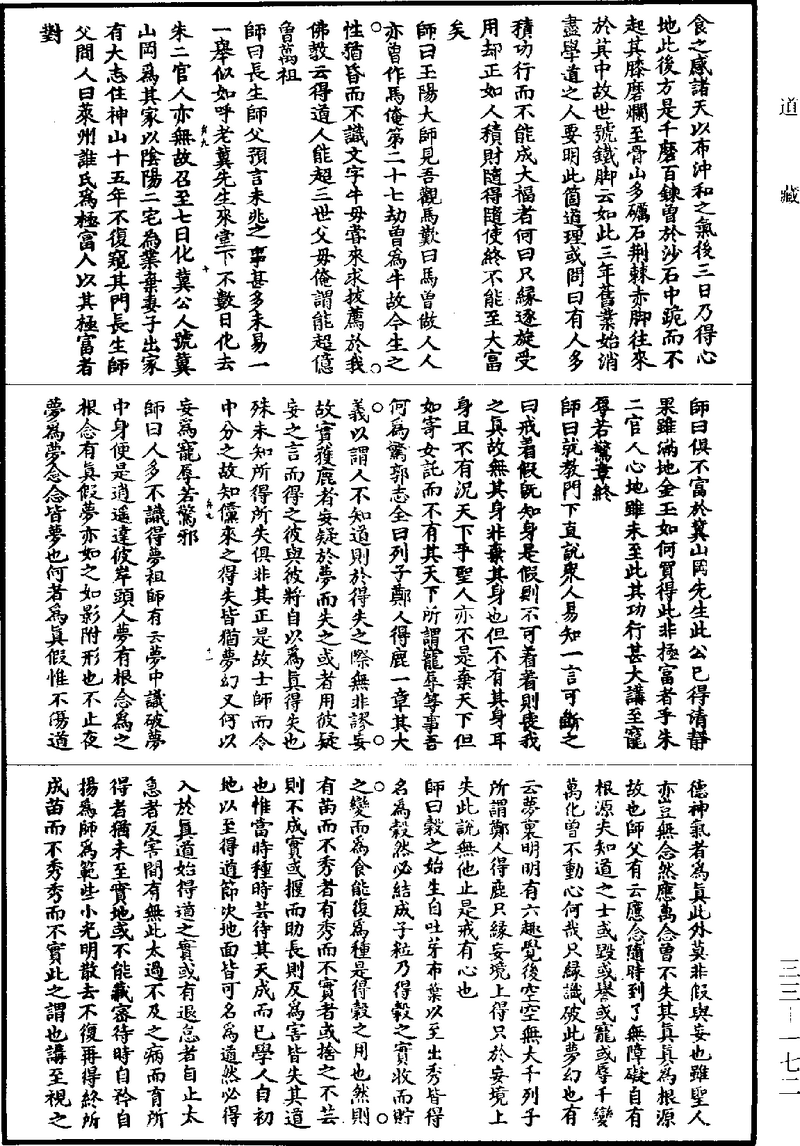 道藏
食之感諸天以布沖和之氣後三日乃得心
地此後方是千磨百鍊曾於沙石中跪而不
起其膝磨爛至骨山多礪石荆棘赤脚往來
於其中故世號鐵脚云如此三年舊業始消
盡學道之人要明此箇道理或問曰有人多
積功行而不能成大福者何曰只緣逐旋受
用却正如人積財隨得隨使終不能至大富
矣
師曰王陽大師見吾觀馬歎曰馬曾做人人
亦曾作馬俺第二十七劫曾爲牛故今生之
性猶昏而不識文字牛毋嘗來求拔薦於我
佛教云得道人能超三世父毋俺謂能超億
魯萬祖
師曰長生師父預言未兆之事甚多未易一
一舉似如呼老龔先生來堂下不數日化去
朱二官人亦無故召至七日化龔公人號龔
山岡爲其家以陰陽二宅為業棄妻子出家
有大志住神山十五年不復窺其門長生師
父問人曰萊州誰氏爲極富人以其極富者
對
師曰俱不富於龔山岡先生此公已得清靜
果雖滿地金玉如何買得此非極富者乎朱
二官人心地雖未至此其功行甚大講至寵
辱若驚章終
師曰就教門下直說衆人易知一言可斷之
曰戒着假旣知身是假則不可着着則喪我
之真故無其身非棄其身也但不有其身耳
身且不有况天下乎聖人亦不是棄天下但
如寄女託而不有其天下所謂寵辱等事吾
何為驚郭志全曰列子鄭人得鹿一章其大
義以謂人不知道則於得失之際無非謬妄
故實獲鹿者妄疑於夢而失之或者用彼疑
妄之言而得之彼與彼將自以爲眞得失也
殊未知所得所失俱非其正是故士師而令
中分之故知儻來之得失皆猶夢幻又何以
妄為寵辱若驚邪
師曰人多不識得夢祖師有云夢中識破夢
中身便是逍遥達彼岸頭人夢有根念為之
根念有眞假夢亦如之如影附形也不止夜
夢為夢念念皆夢也何者爲眞假惟不傷道
德神氣者為眞此外莫非假與妄也雖聖人
亦豈無念然應萬念曾不失其眞眞為根源
故也師父有云應念隨時到了無障礙自有
根源夫知道之士或毀或譽或寵或辱千變
萬化曾不動心何哉只緣識破此夢幻也有
云夢裏明明有六趣覺後空空無大千列子
所謂鄭人得鹿只緣妄境上得只於妄境上
失此說無他止是戒有心也
師曰穀之始生自吐芽布葉以至出秀皆得
名為穀然必結成子粒乃得穀之實收而貯
之變而為食能復爲種是得穀之用也然則
有苗而不秀者有秀而不實者或捨之不芸
則不成實或揠而助長則反爲害皆失其道
也惟當時種時芸待其天成而已學人自初
地以至得道節次地面皆可名為道然必得
入於眞道始得道之實或有退怠者自止太
急者反害間有無此太過不及之病而有所
得者猶未至實地或不能藏審待時自矜自
揚為師為範些小光明散去不復再得終所
成苗而不秀秀而不實此之謂也講至視之
三三－一七二